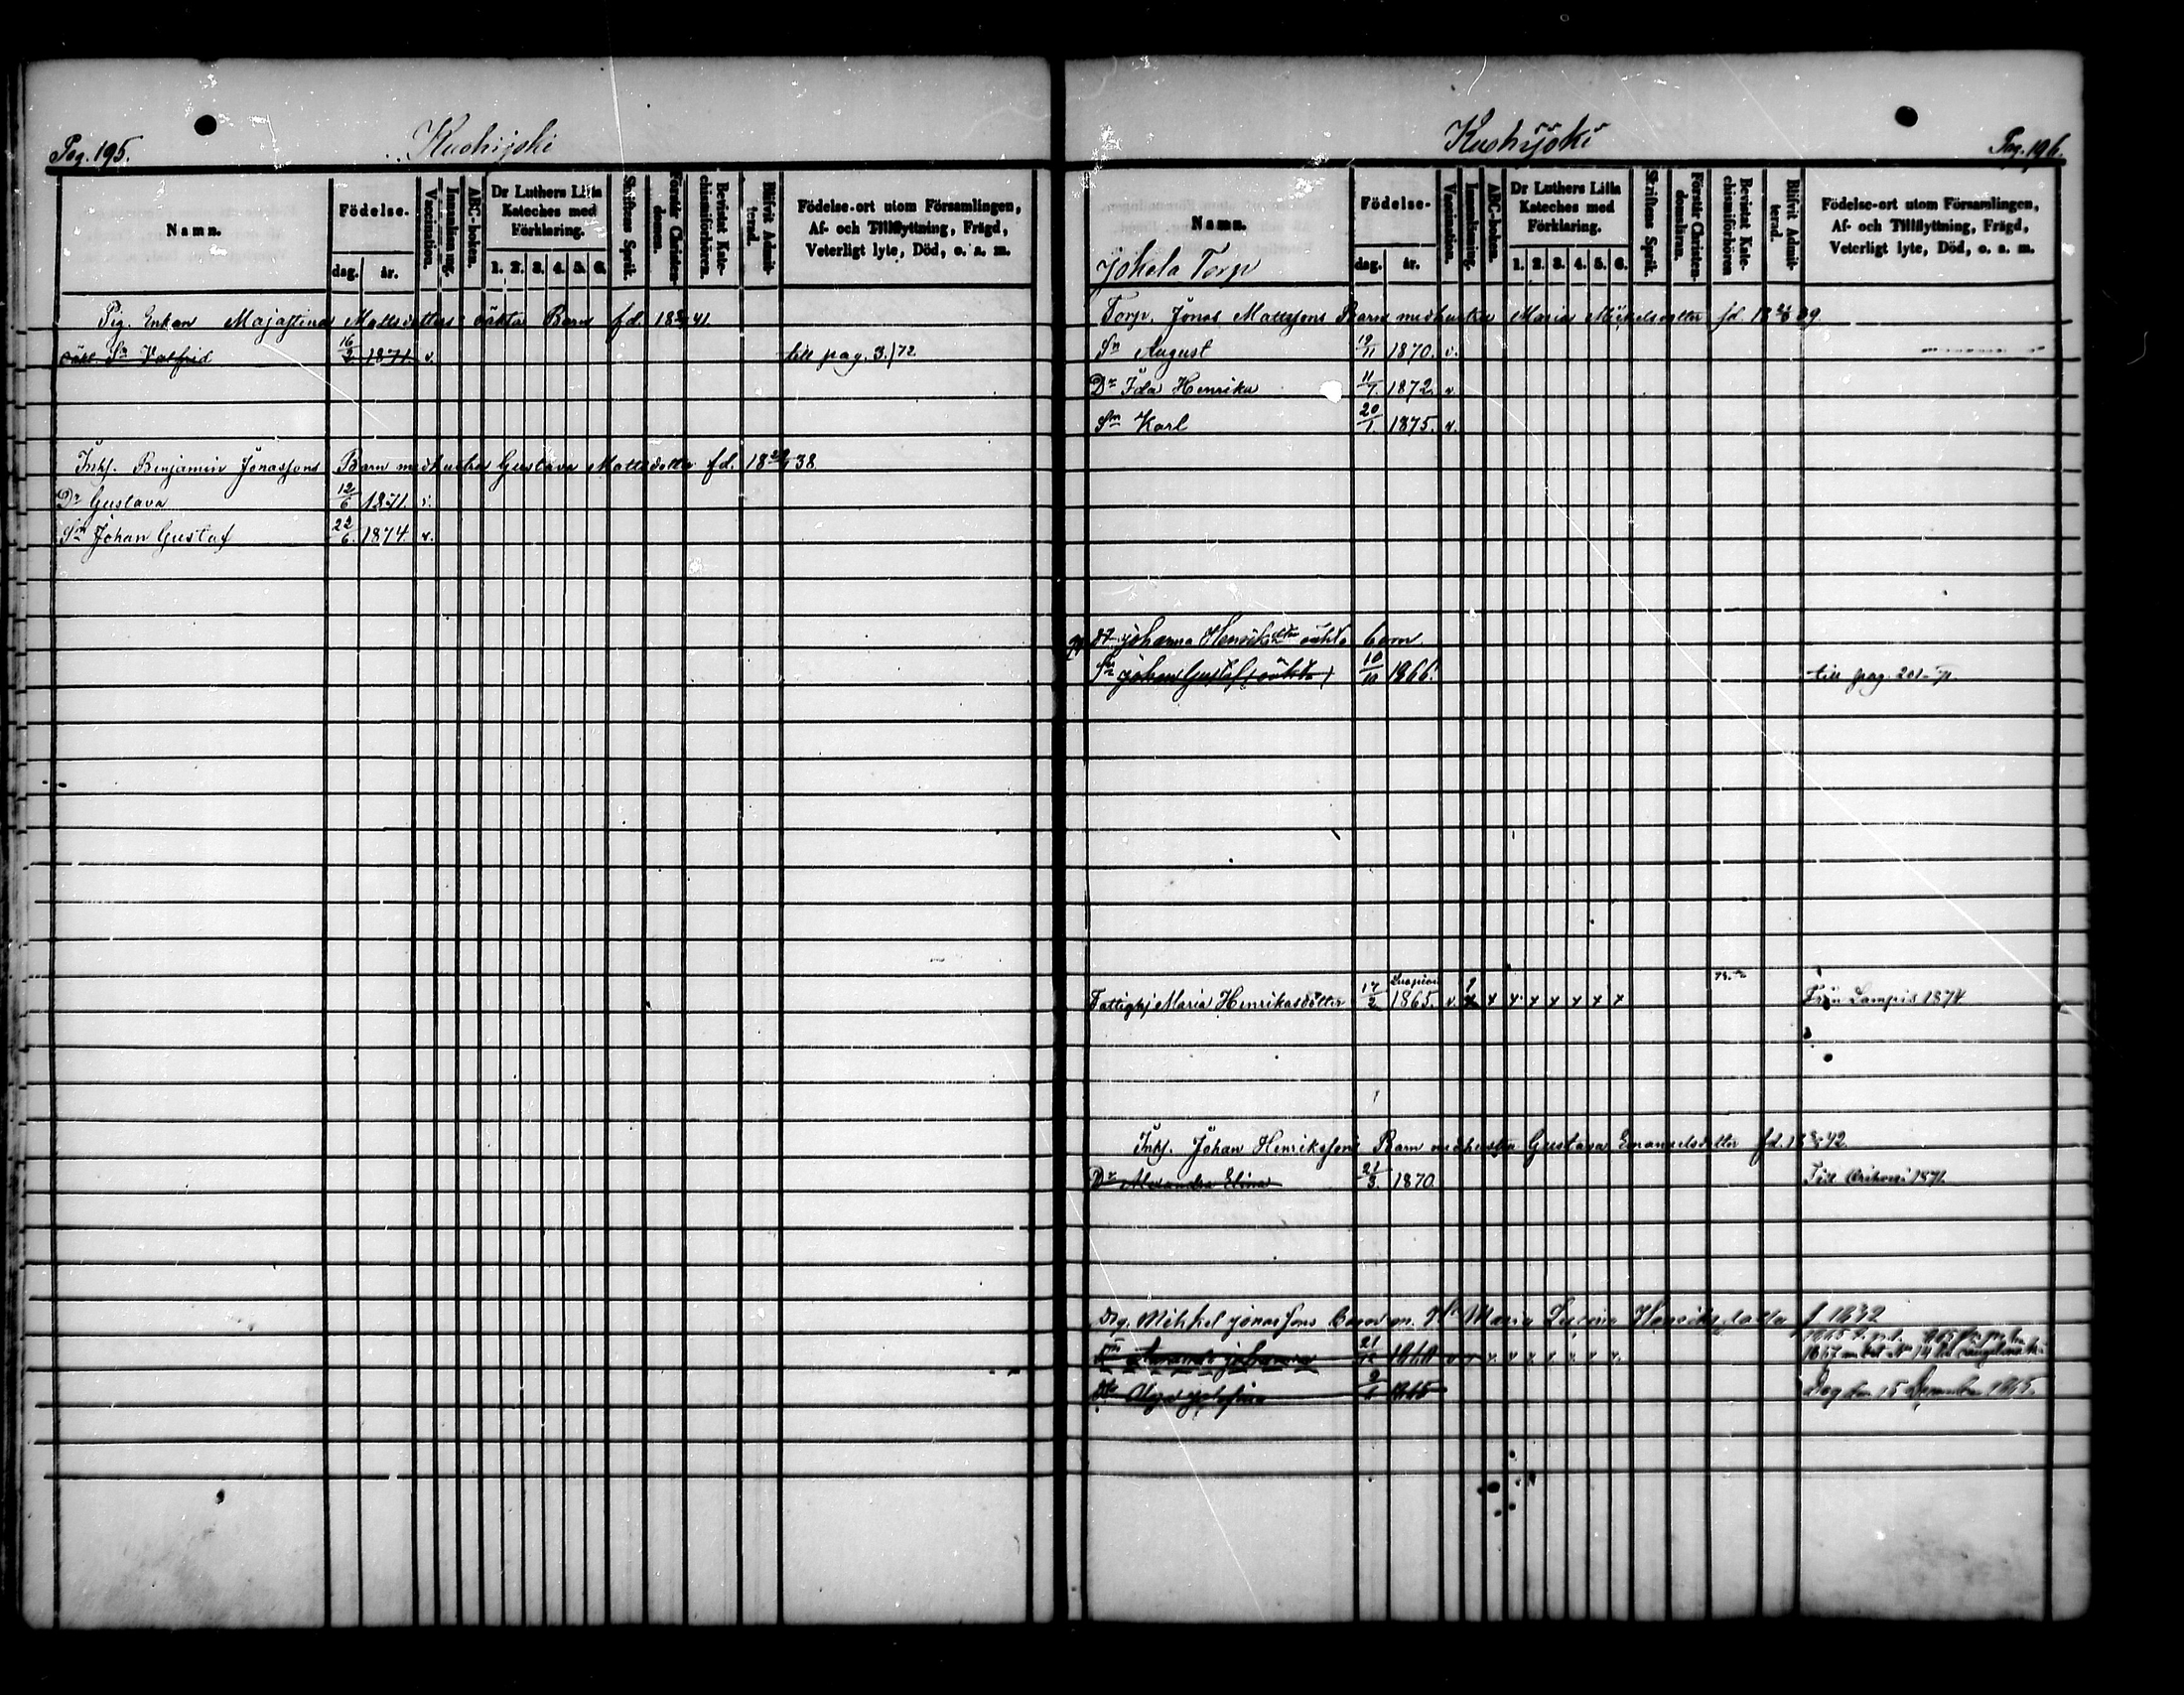 Pag. 195.
Kuohijoki
Namn.
Födelse.
dag.
år.
Vaccination.
Innanläsning.
ABC-boken.
Dr Luthers Lilla Kateches med Förklaring.
1. 2. 3. 4. 5. 6.
Skriftens Språk.
Förstår Christendomen.
Bevistat Katechismiförhören.
Blifvit Admitterad.
Födelse-ort utom Församlingen,
Af- och Tillflyttning, Frägd,
Veterligt lyte, Död, o. a. m.
Pig. Enkan Majastina Mattsdotters oäkta Barn fd. 41.
oäkt. Sn Valfrid 16/2 1871. v. till pag. 3./72
Inhs. Benjamin Jonassons Barn med hustru Gustava Mattsdotter fd. 38
Dr Gustava 12/6 1871 v.
Sn Johan Gustaf 22/6. 1874 v.
Kuohijoki
Pag. 196.
Namn.
Jokela Torp
Födelse.
dag.
år.
Vaccination.
Innanläsning.
ABC-boken.
Dr Luthers Lilla Kateches med Förklaring.
1. 2. 3. 4. 5. 6.
Skriftens Språk.
Förstår Christendomsläran.
Bevistat Katechismiförhören
Blifvit Admitterad.
Födelse-ort utom Församlingen,
Af- och Tillflyttning, Frägd,
Veterligt lyte, Död, o. a. m.
Torp. Jonas Mattssons Barn med hustru Maria Michelsdotter fd. 39
Sn August 19/11 1870. v.
Dr Ida Henrika 11/7. 1872. v.
Sn Karl 20/1. 1875. v.
Johanna Henriksdtr oäkta barn
Sn Johan Gustaf (oäkta) 10/10 1866. till pag. 201
Fattighj Maria Henriksdotter 17/2 1865. v. x x x x x x x x Från Lampis 1874
Inhs. Johan Henrikssons Barn med hustru Gustava Emanuelsdotter fd. 42
Dr Alexandra Elina 21/3. 1870 Till 1871.
Drg. Mihkel Jonassons Barn m. Maria Henriksdotter f 1832
Amanda Johanna 21/12
Josefina 9/11 1865 Dog den 15 December 1865.